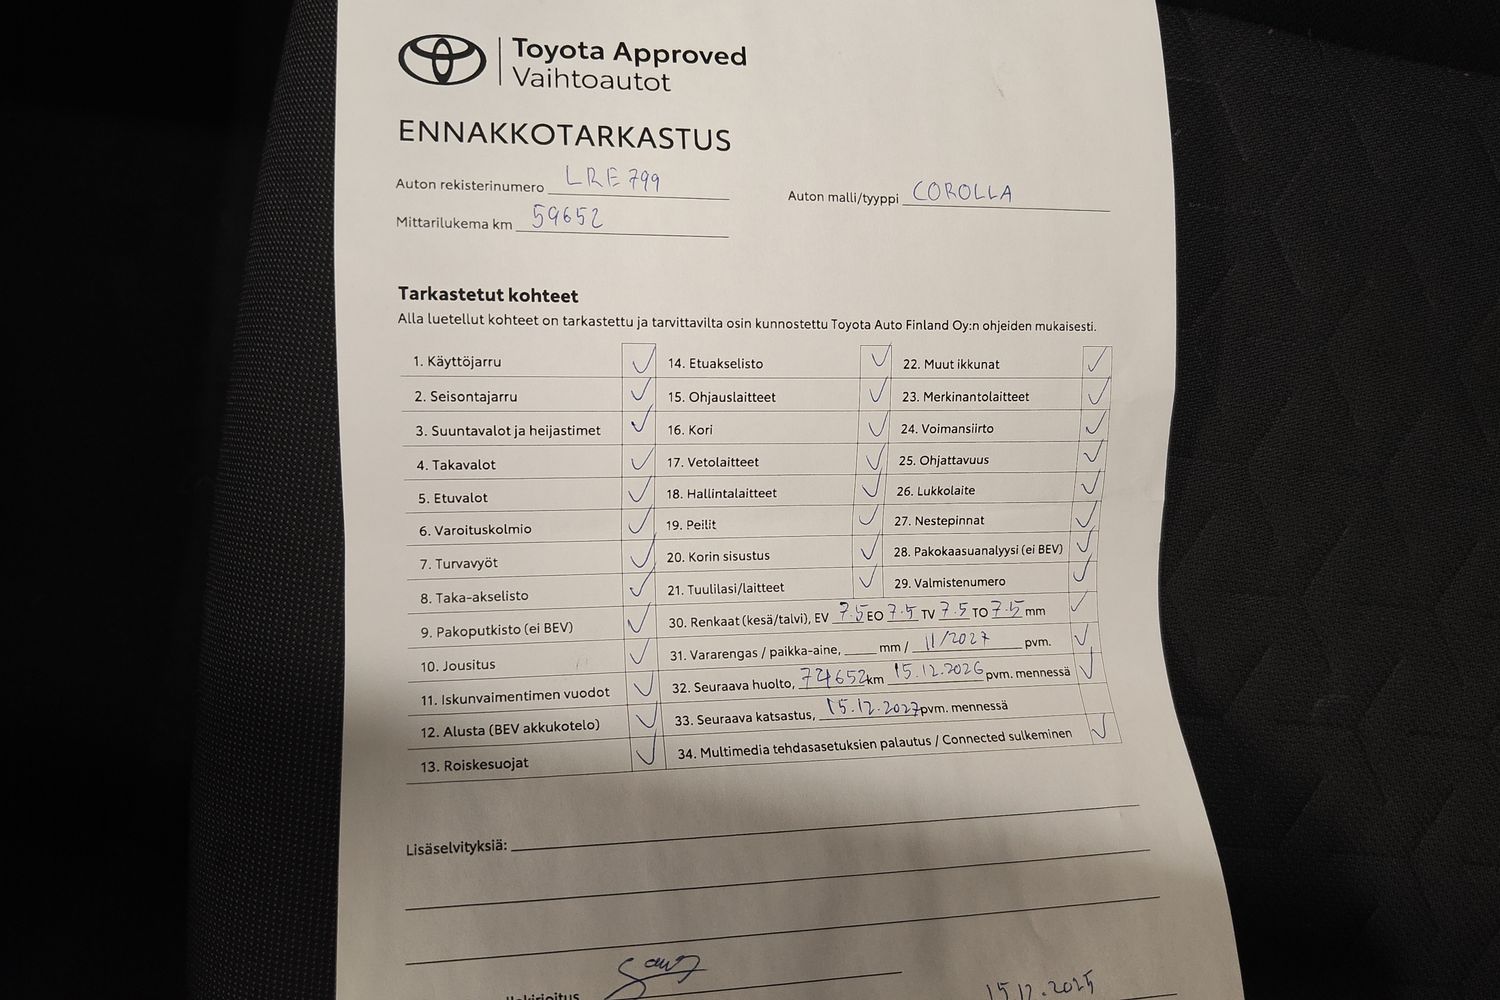 Toyota Approved
Vaihtoautot
ENNAKKOTARKASTUS
Auton rekisterinumero LRE 799
Auton malli/tyyppi COROLLA
Mittarilukema km 59652
Tarkastetut kohteet
Alla luetellut kohteet on tarkastettu ja tarvittavilta osin kunnostettu Toyota Auto Finland Oy:n ohjeiden mukaisesti.
1. Käyttöjarru
2. Seisontajarru
3. Suuntavalot ja heijastimet
4. Takavalot
5. Etuvalot
6. Varoituskolmio
7. Turvavyöt
8. Taka-akselisto
9. Pakoputkisto (ei BEV)
10. Jousitus
11. Iskunvaimentimen vuodot
12. Alusta (BEV akkukotelo)
13. Roiskesuojat
14. Etuakselisto
15. Ohjauslaitteet
16. Kori
17. Vetolaitteet
18. Hallintalaitteet
19. Peilit
20. Korin sisustus
21. Tuulilasi/laitteet
22. Muut ikkunat
23. Merkinantolaitteet
24. Voimansiirto
25. Ohjattavuus
26. Lukkolaite
27. Nestepinnat
28. Pakokaasuanalyysi (ei BEV)
29. Valmistenumero
30. Renkaat (kesä/talvi), EV 7.5 EO 7.5 TV 7.5 TO 7.5 mm
31. Vararengas / paikka-aine, mm / 11/2027 pvm.
32. Seuraava huolto, 74652 km 15.12.2026 pvm. mennessä
33. Seuraava katsastus, 15.12.2027 pvm. mennessä
34. Multimedia tehdasasetuksien palautus / Connected sulkeminen
Lisäselvityksiä:
15.12.2025